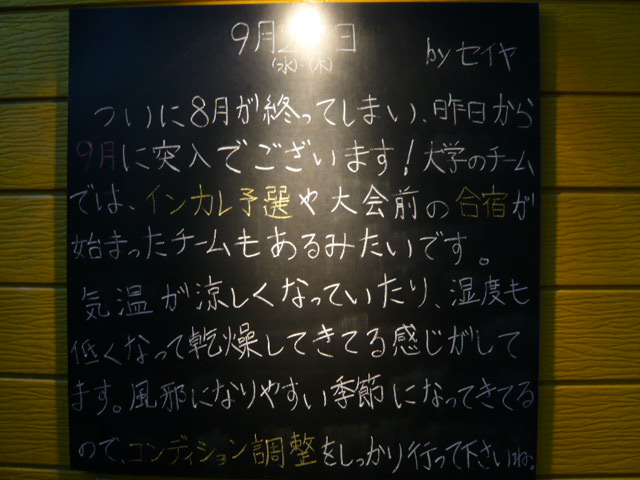 9月 日
(水)・(木)
byセイヤ
ついに8月が終ってしまい、昨日から
9月に突入でございます！大学のチーム
では、インカレ予選や大会前の合宿が
始まったチームもあるみたいです。
気温が涼しくなっていたり、湿度も
低くなって乾燥してきてる感じがして
ます。風邪になりやすい季節になってきてる
ので、コンディション調整をしっかり行って下さいね。